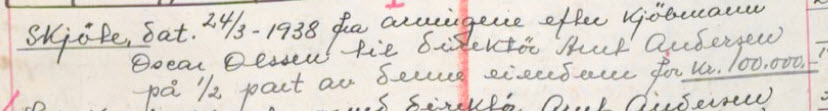 Skjöte, dat. 24/3-1938 fra arvingene efter Kjöbmann
Oscar Olssen til direktör Arnt Andersen
på 1/2 part av denne eiendom for kr. 100.000.-
direktör Arnt Andersen